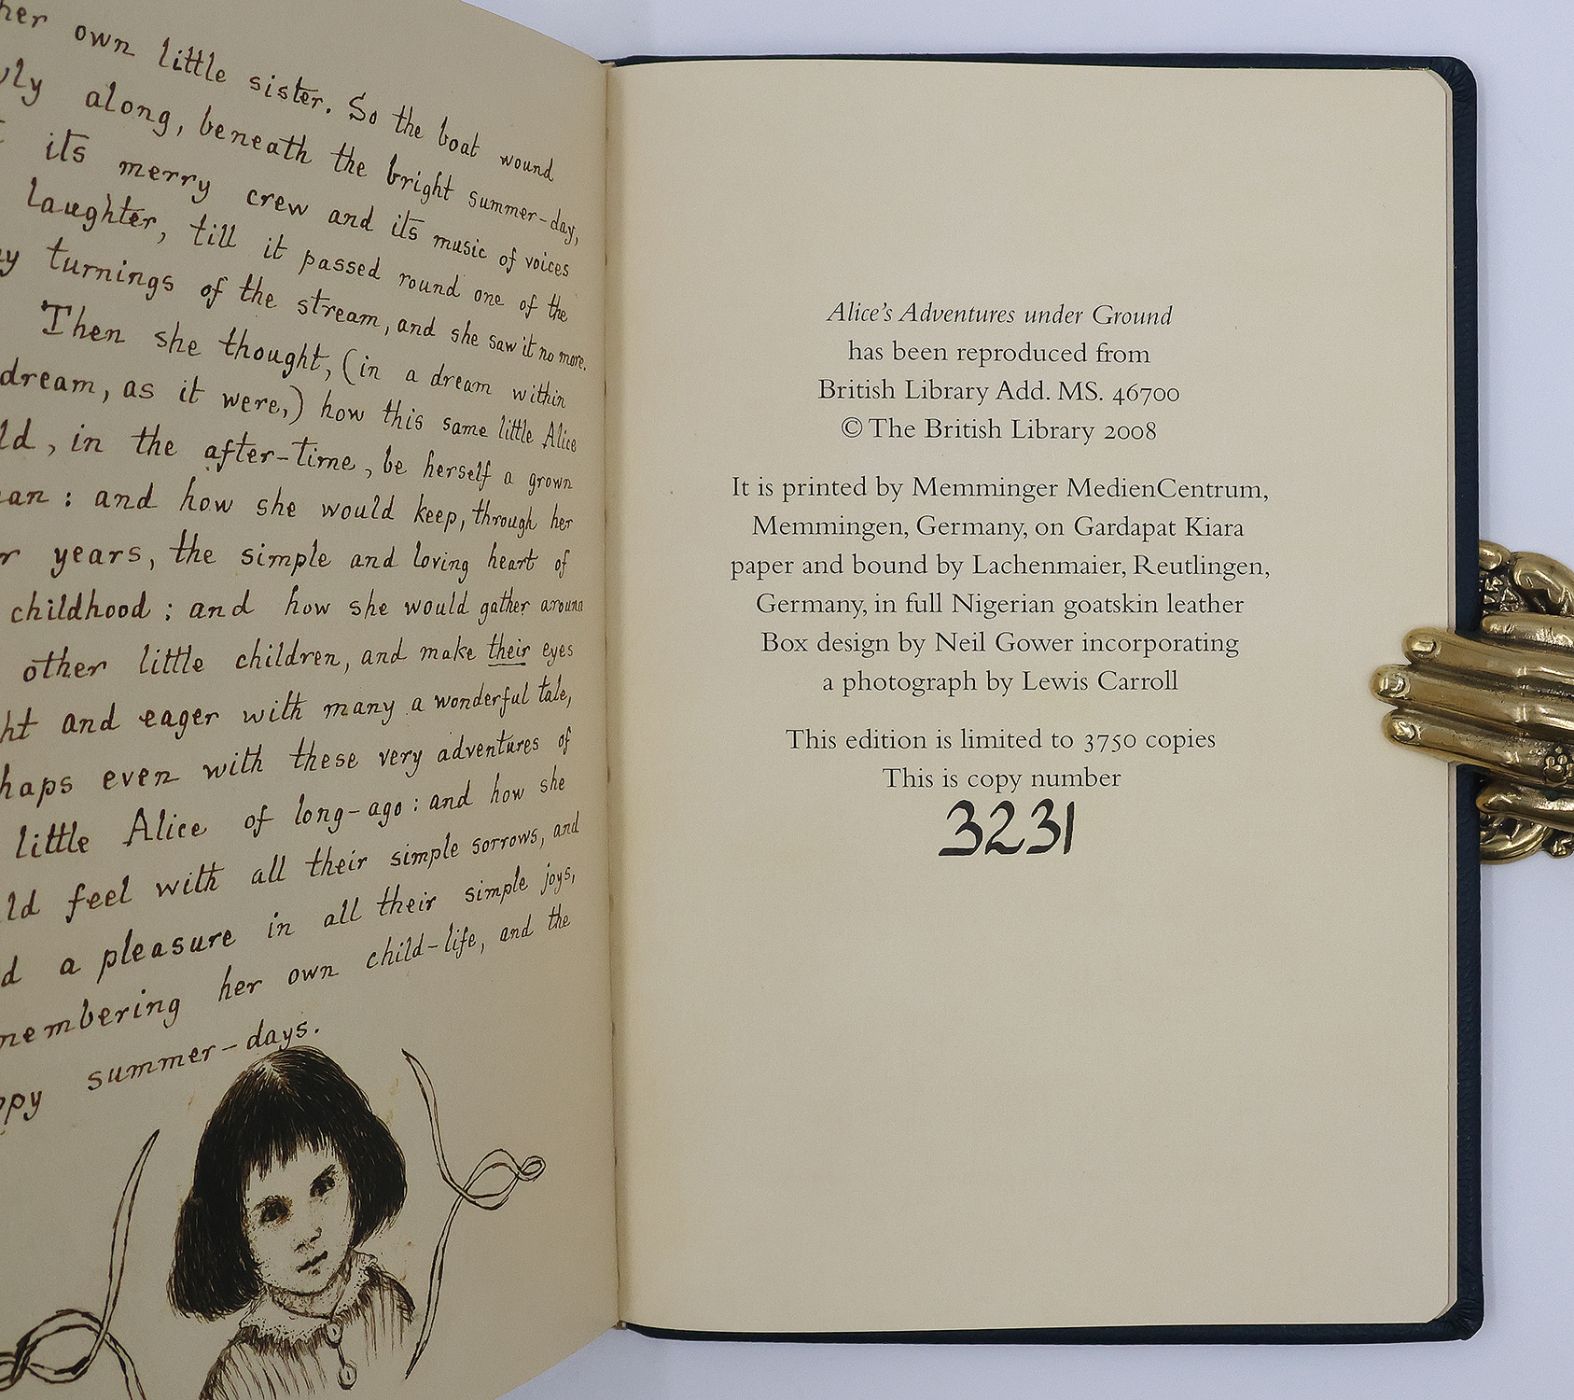 her own little sister. So the boat wound
along, beneath the bright summer-day,
its merry crew and its music of voices
laughter, till it passed round one of the
turnings of the stream, and she saw it no more.
Then she thought, (in a dream within
dream, as it were,) how this same little Alice
in the after-time, be herself a grown
: and how she would keep, through her
years, the simple and loving heart of
childhood : and how she would gather around
other little children, and make their eyes
and eager with many a wonderful tale,
even with these very adventures of
little Alice of long-ago : and how she
feel with all their simple sorrows, and
a pleasure in all their simple joys,
her own child-life, and the
summer-days.
Alice's Adventures under Ground
has been reproduced from
British Library Add. MS. 46700
© The British Library 2008
It is printed by Memminger MedienCentrum,
Memmingen, Germany, on Gardapat Kiara
paper and bound by Lachenmaier, Reutlingen,
Germany, in full Nigerian goatskin leather
Box design by Neil Gower incorporating
a photograph by Lewis Carroll
This edition is limited to 3750 copies
This is copy number
3231